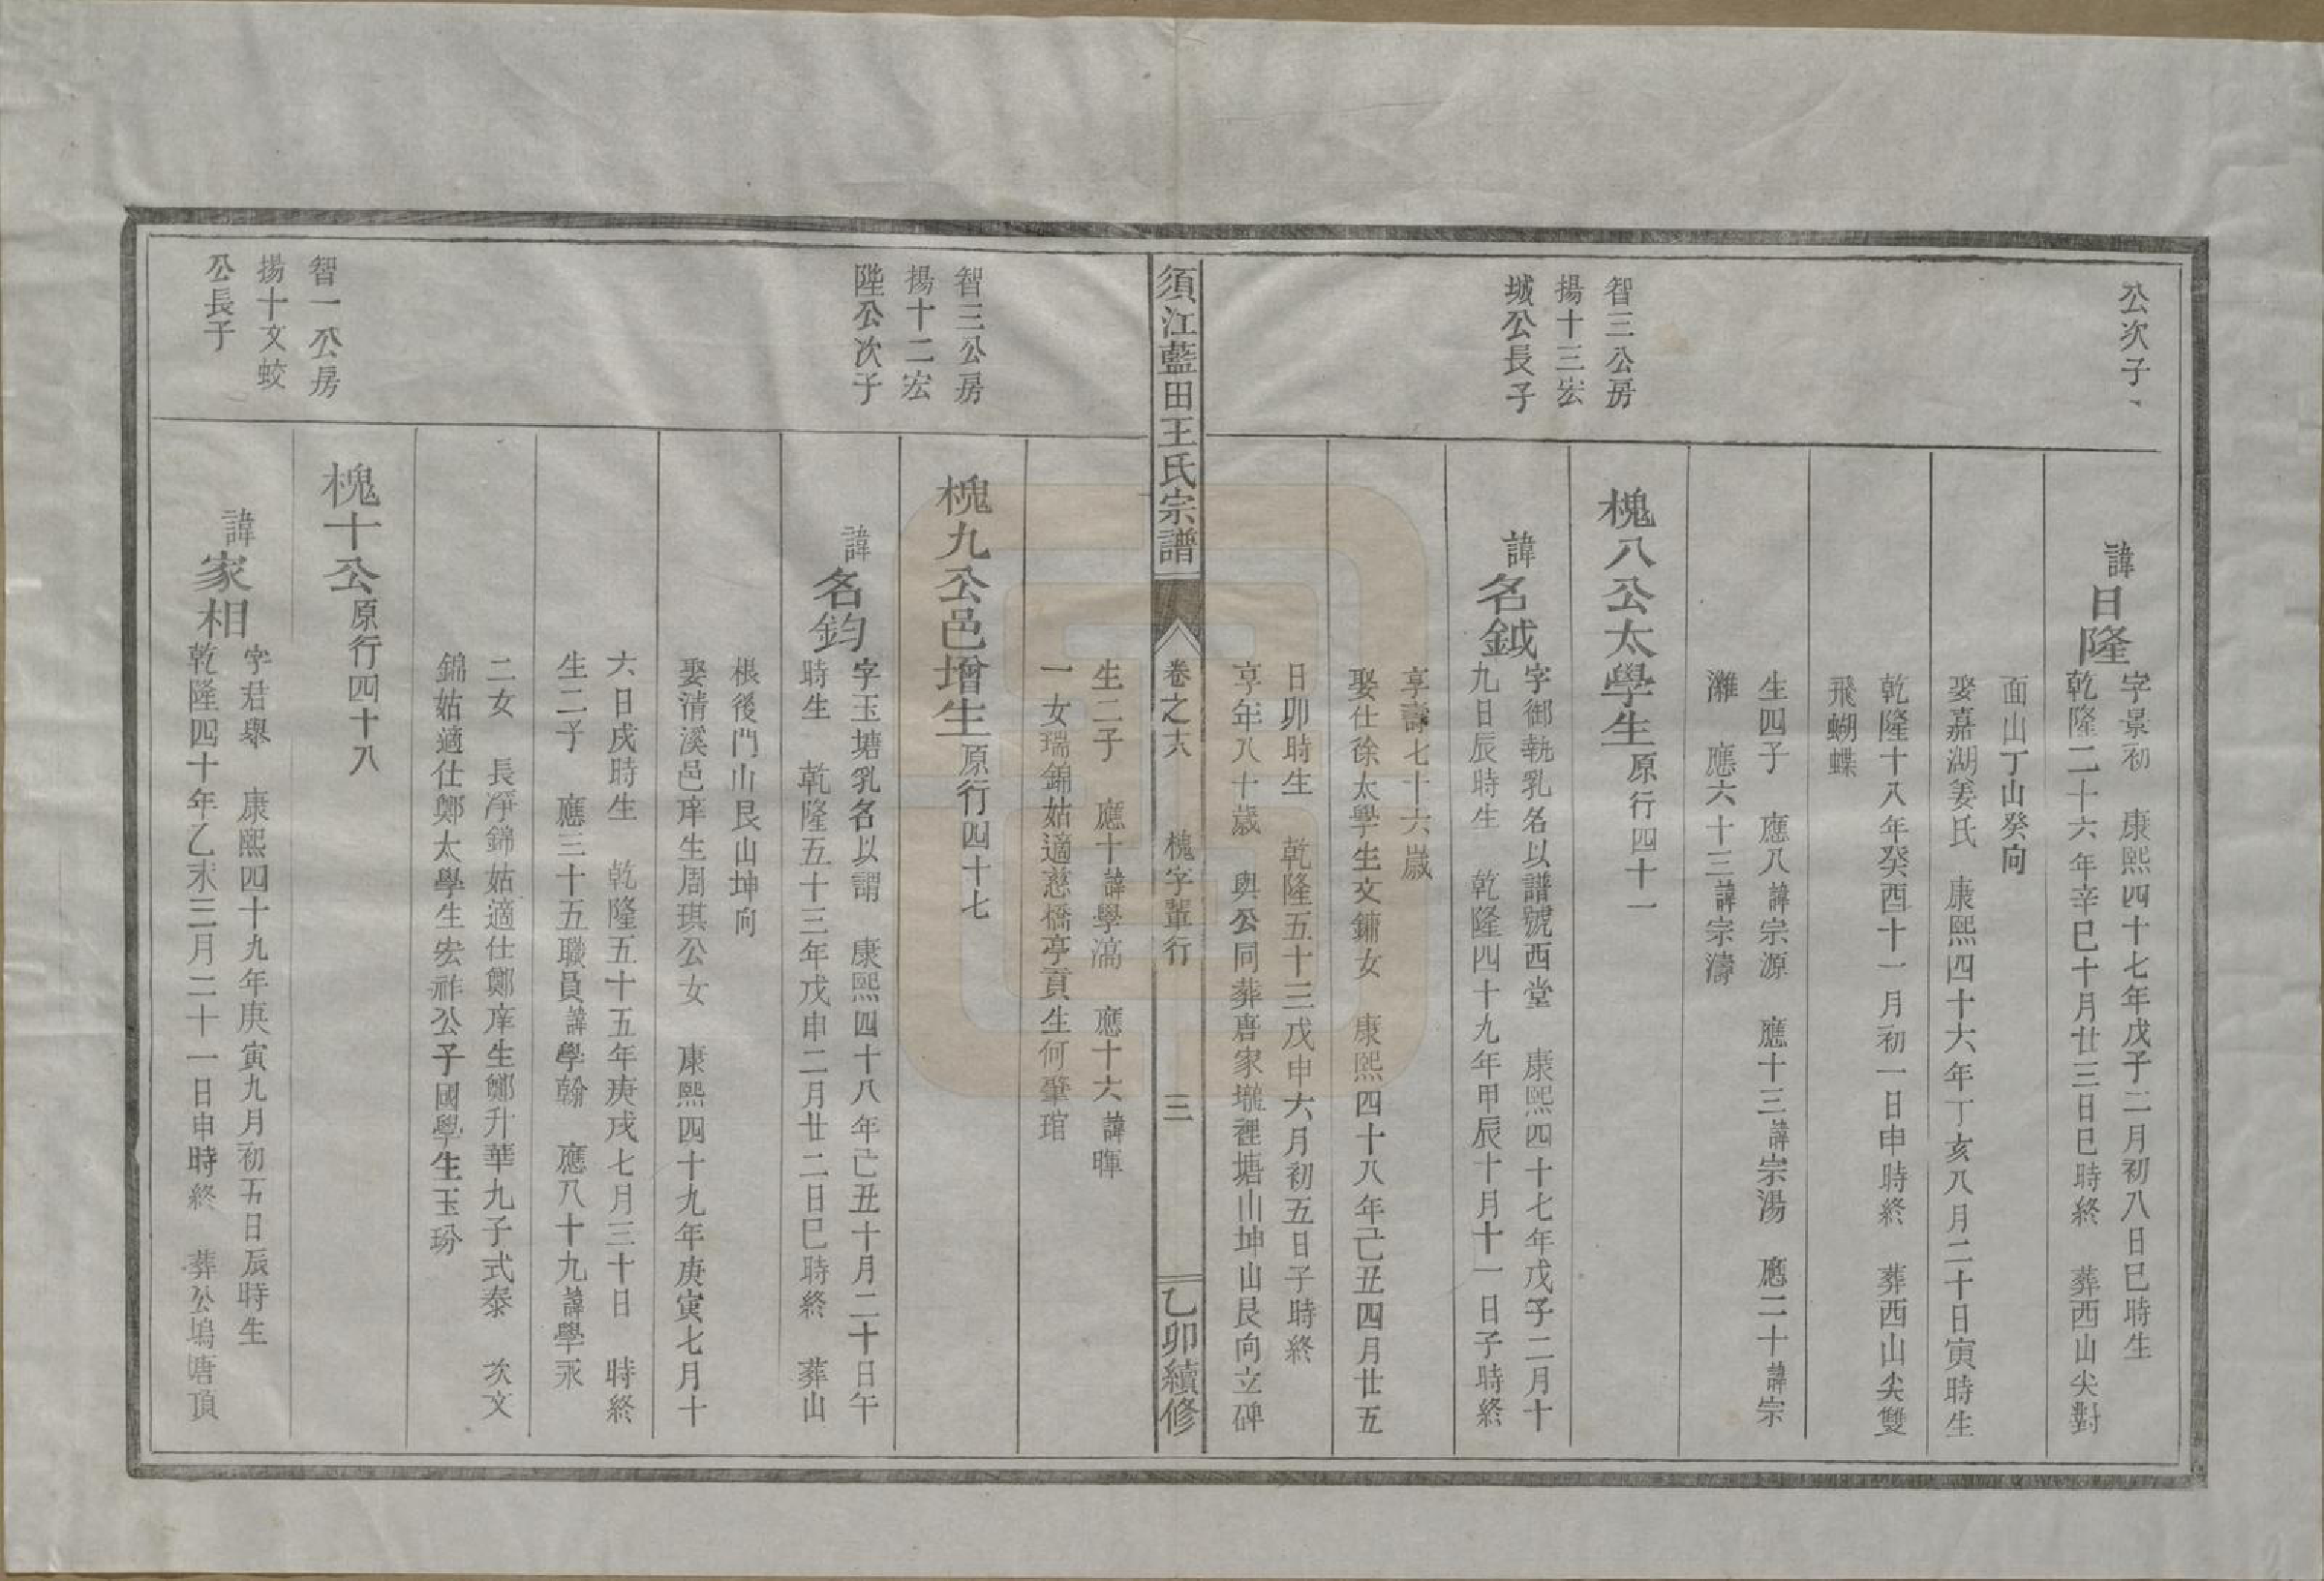 公次子、
諱日隆
字景初 康熙四十七年戊子二月初八日巳時生
乾隆二十六年辛巳十月廿三日巳時終 葬西山尖對
面山丁山癸向
娶嘉湖姜氏 康熙四十六年丁亥八月二十日寅時生
乾隆十八年癸酉十一月初一日申時終 葬西山尖雙
飛蝴蝶
生四子 應八諱宗源 應十三諱宗湯 應二十諱宗
濰 應六十三諱宗濤
智三公房
揚十三宏
城公長子
槐八公太學生原行四十一
諱名鉞
字御執乳名以譜號西堂 康熙四十七年戊子二月十
九日辰時生 乾隆四十九年甲辰十月十一日子時終
享壽七十六歲
娶仕徐太學生文鏞女 康熙四十八年己丑四月廿五
日卯時生 乾隆五十三戊申六月初五日子時終
享年八十歲 與公同葬唐家壠裡塘山坤山艮向立碑
須江藍田王氏宗譜
卷之六 槐字輩行 三
乙卯續修
生二子 應十諱學滈 應十六諱暉
一女瑞錦姑適慈橋亭貢生何肇琯
智三公房
揚十二宏
陛公次子
槐九公邑增生原行四十七
諱名鈞
字玉塘乳名以謂 康熙四十八年己丑十月二十日午
時生 乾隆五十三年戊申二月廿二日巳時終 葬山
根後門山艮山坤向
娶清溪邑庠生周琪公女 康熙四十九年庚寅七月十
六日戌時生 乾隆五十五年庚戌七月三十日 時終
生二子 應三十五職員諱學翰 應八十九諱學永
二女 長淨錦姑適仕鄭庠生鄭升華九子式泰 次文
錦姑適仕鄭太學生宏祚公子國學生玉玢
智一公房
揚十文蛟
公長子
槐十公原行四十八
諱家相
字君舉 康熙四十九年庚寅九月初五日辰時生
乾隆四十年乙未三月二十一日申時終 葬公塢塘頂